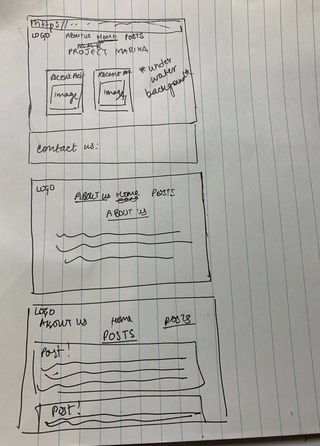 https://...
LOGO ABOUT US HOME POSTS
PROJECT MARINA
RECENT POST RECENT POST
image image
*under
water
background*
contact us:
LOGO
ABOUT US Home POSTS
ABOUT US
LOGO
ABOUT US Home POSTS
POSTS
POST!
POST!